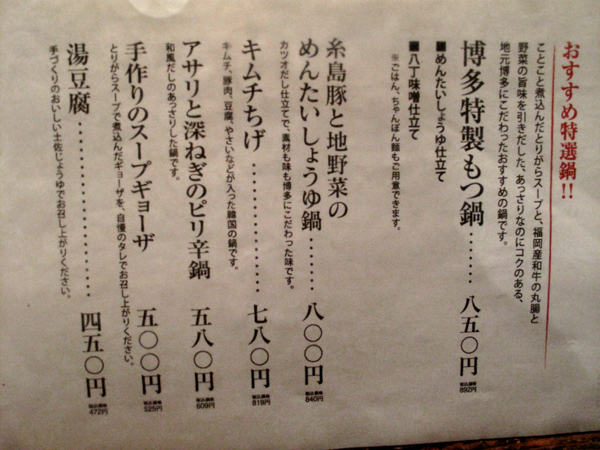 おすすめ特選鍋!!
ことこと煮込んだとりがらスープと、福岡産和牛の丸腸と
野菜の旨味を引きだした、あっさりなのにコクのある、
地元博多にこだわったおすすめの鍋です。
博多特製もつ鍋‥‥‥ 八五〇円
税込価格 892円
■めんたいしょうゆ仕立て
■八丁味噌仕立て
※ごはん、ちゃんぽん麺もご用意できます。
糸島豚と地野菜の
めんたいしょうゆ鍋‥‥‥ 八〇〇円
税込価格 840円
カツオだし仕立てで、素材も味も博多にこだわった味です。
キムチちげ‥‥‥‥‥‥‥ 七八〇円
税込価格 819円
キムチ、豚肉、豆腐、やさいなどが入った韓国の鍋です。
アサリと深ねぎのピリ辛鍋 五八〇円
税込価格 609円
和風だしのあっさりした鍋です。
手作りのスープギョーザ 五〇〇円
税込価格 525円
とりがらスープで煮込んだギョーザを、自慢のタレでお召し上がりください。
湯豆腐‥‥‥‥‥‥‥‥‥ 四五〇円
税込価格 472円
手づくりのおいしい土佐じょうゆでお召し上がりください。